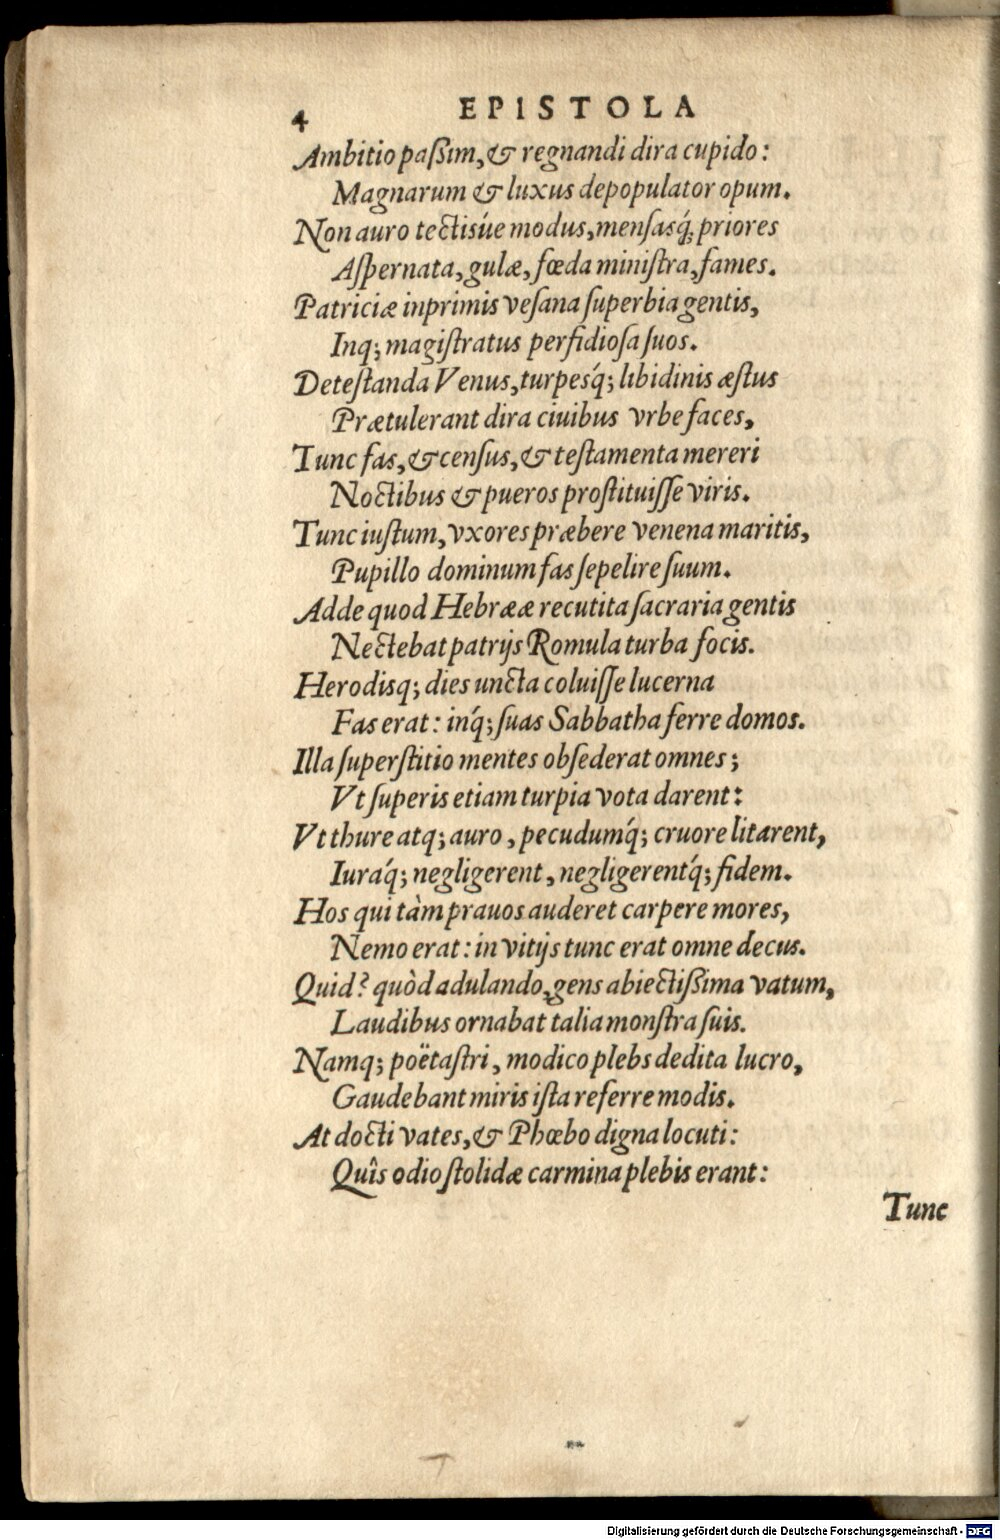 4 EPISTOLA
Ambitio paßim, & regnandi dira cupido:
Magnarum & luxus depopulator opum.
Non auro tectisúe modus, mensasq́; priores
Aſpernata, gulæ, fœda miniſtra, fames.
Patriciæ inprimis veſana ſuperbia gentis,
Inq; magiſtratus perfidioſa ſuos.
Deteſtanda Venus, turpesq́; libidinis æſtus
Prætulerant dira ciuibus vrbe faces,
Tunc fas, & cenſus, & teſtamenta mereri
Noctibus & pueros proſtituiſſe viris.
Tunc iuſtum, vxores præbere venena maritis,
Pupillo dominum fas ſepelire ſuum.
Adde quod Hebrææ recutita ſacraria gentis
Nectebat patrijs Romula turba focis.
Herodisq; dies uncta coluiſſe lucerna
Fas erat: inq́; ſuas Sabbatha ferre domos.
Illa ſuperſtitio mentes obſederat omnes;
Vt ſuperis etiam turpia vota darent:
Vt thure atq; auro, pecudumq́; cruore litarent,
Iuraq́; negligerent, negligerentq́; fidem.
Hos qui tàm prauos auderet carpere mores,
Nemo erat: in vitijs tunc erat omne decus.
Quid? quòd adulando, gens abiectißima vatum,
Laudibus ornabat talia monſtra ſuis.
Namq; poëtaſtri, modico plebs dedita lucro,
Gaudebant miris iſta referre modis.
At docti vates, & Phœbo digna locuti:
Quîs odio ſtolidæ carmina plebis erant:
Tunc
Digitalisierung gefördert durch die Deutsche Forschungsgemeinschaft - DFG